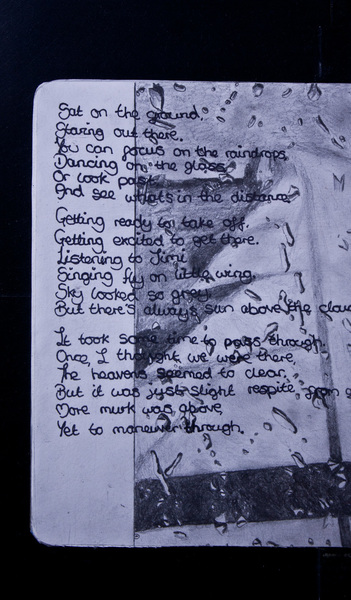 Sat on the ground.
Staring out there.
You can focus on the raindrops,
Dancing on the glass.
Or look past
And see what's in the distance.
Getting ready to take off.
Getting excited to get there.
Listening to Jimi
Singing fly on little wing.
Sky looked so grey.
But there's always sun above the clou
It took some time to pass through.
Once, I thought we were there,
The heavens seemed to clear.
But it was just slight respite, from
More murk was above,
Yet to maneuver through.